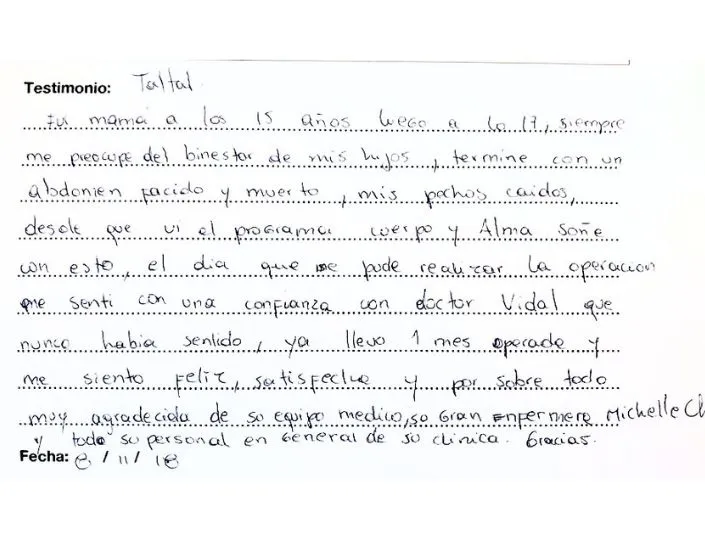 Testimonio: Taltal.
Fui mamá a los 15 años luego a lo 17, siempre
me preocupe del binestar de mis hijos, termine con un
abdomien facido y muerto, mis pechos caidos,
desde que vi el programa cuerpo y Alma soñe
con esto, el dia que me pude realizar la operacion
me senti con una confianza con doctor Vidal que
nunca habia sentido, ya llevo 1 mes operada y
me siento Feliz, satisfecha y por sobre todo
muy agradecida de su equipo medico, so Gran Enfermera Michelle
y todo su personal en General de su clinica. Gracias.
Fecha: 8 / 11 / 18